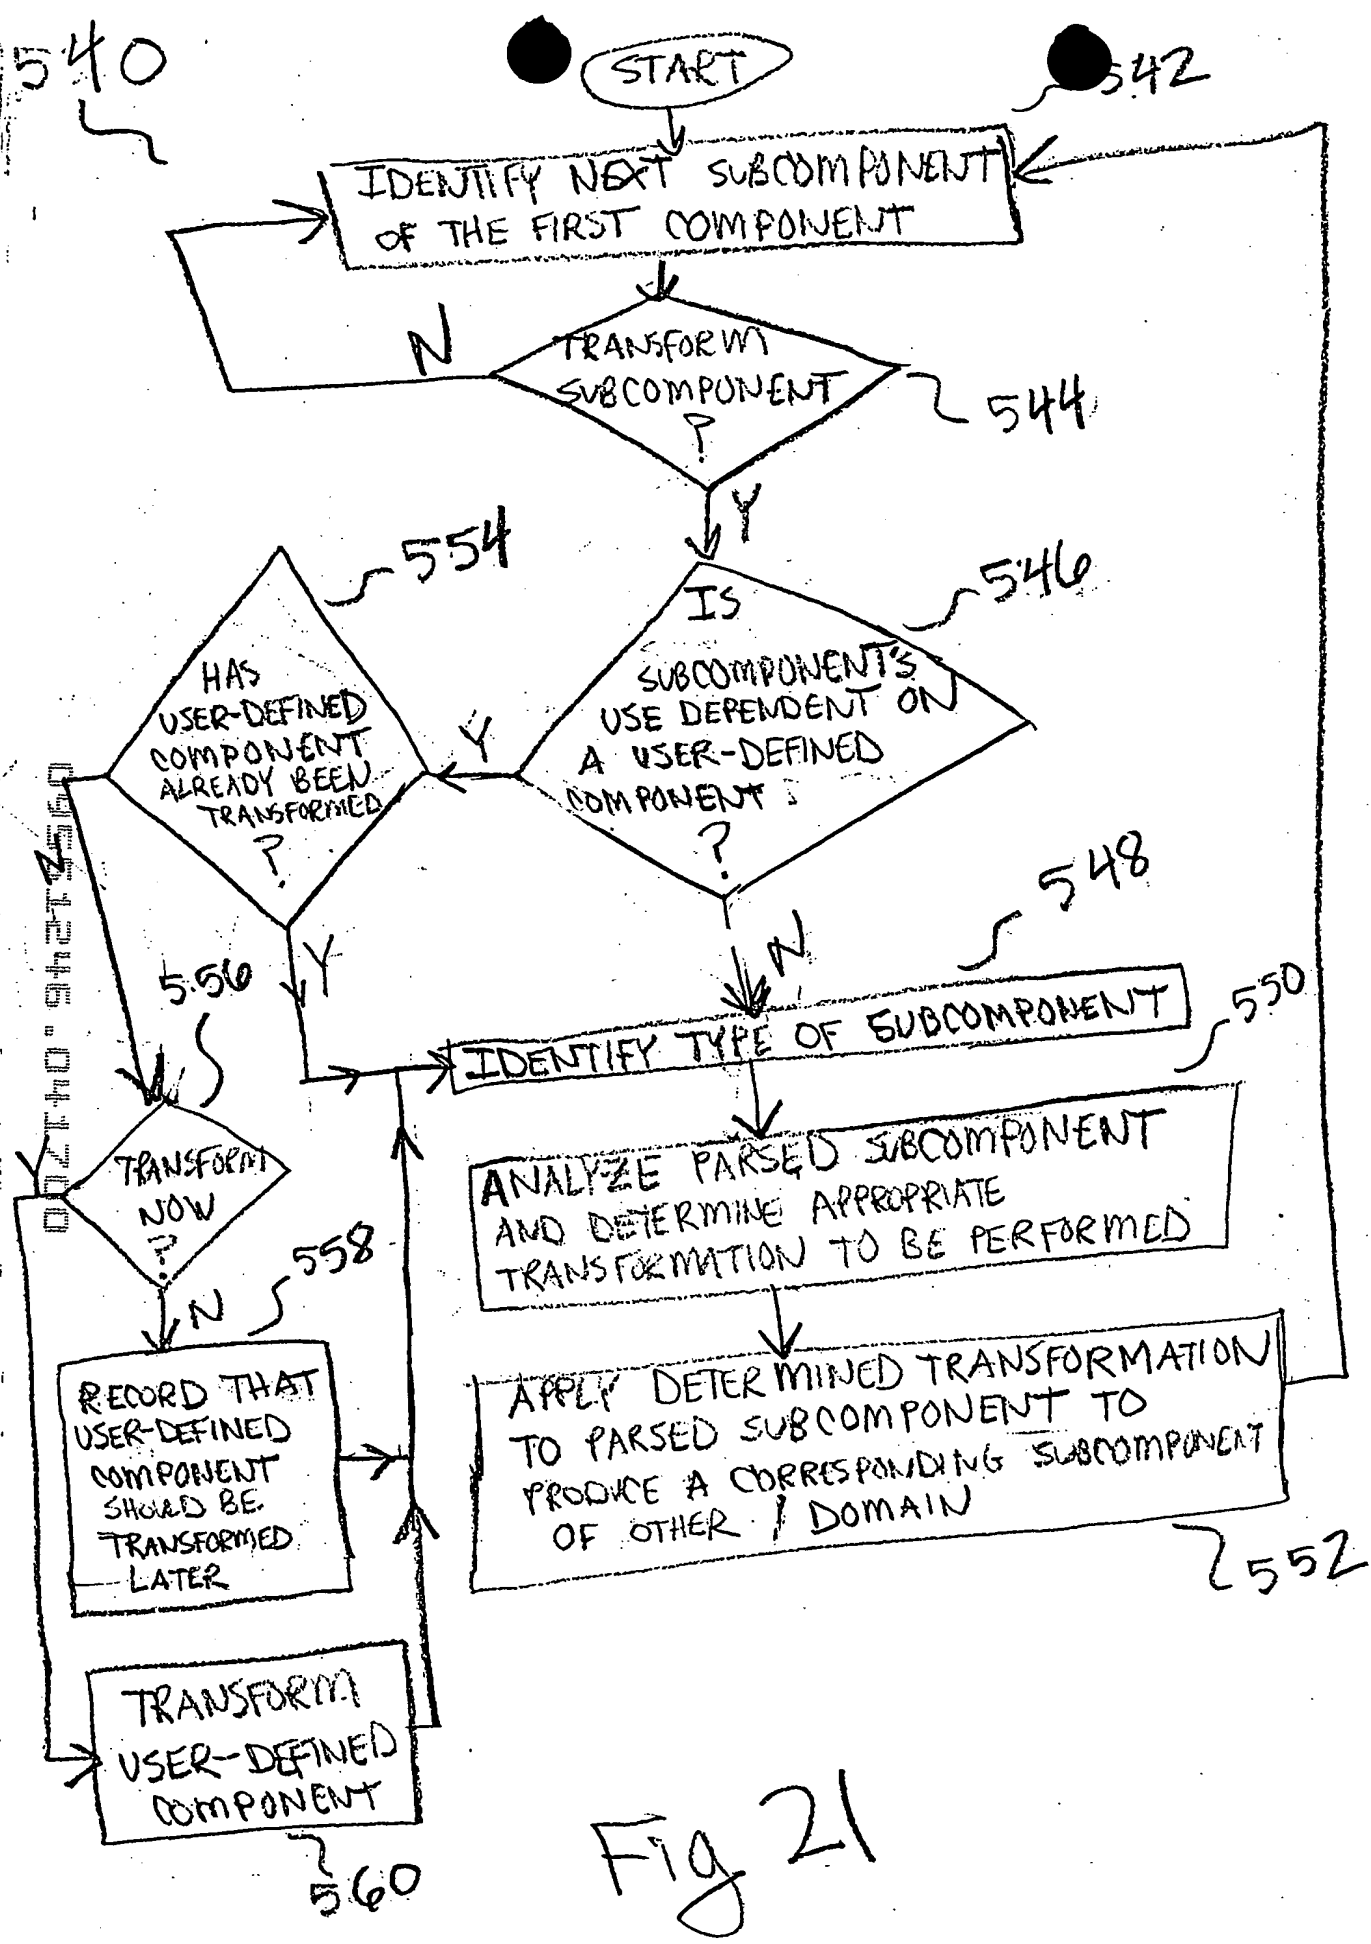 540
START
542
IDENTIFY NEXT SUBCOMPONENT
OF THE FIRST COMPONENT
N
TRANSFORM
SUBCOMPONENT
?
544
Y
554
546
IS
SUBCOMPONENT'S
USE DEPENDENT ON
A USER-DEFINED
COMPONENT
?
Y
HAS
USER-DEFINED
COMPONENT
ALREADY BEEN
TRANSFORMED
?
N
Y
N
548
556
550
IDENTIFY TYPE OF SUBCOMPONENT
Y
TRANSFORM
NOW
?
ANALYZE PARSED SUBCOMPONENT
AND DETERMINE APPROPRIATE
TRANSFORMATION TO BE PERFORMED
558
N
RECORD THAT
USER-DEFINED
COMPONENT
SHOULD BE
TRANSFORMED
LATER
APPLY DETERMINED TRANSFORMATION
TO PARSED SUBCOMPONENT TO
PRODUCE A CORRESPONDING SUBCOMPONENT
OF OTHER / DOMAIN
552
TRANSFORM
USER-DEFINED
COMPONENT
560
Fig 21
09551246.041700